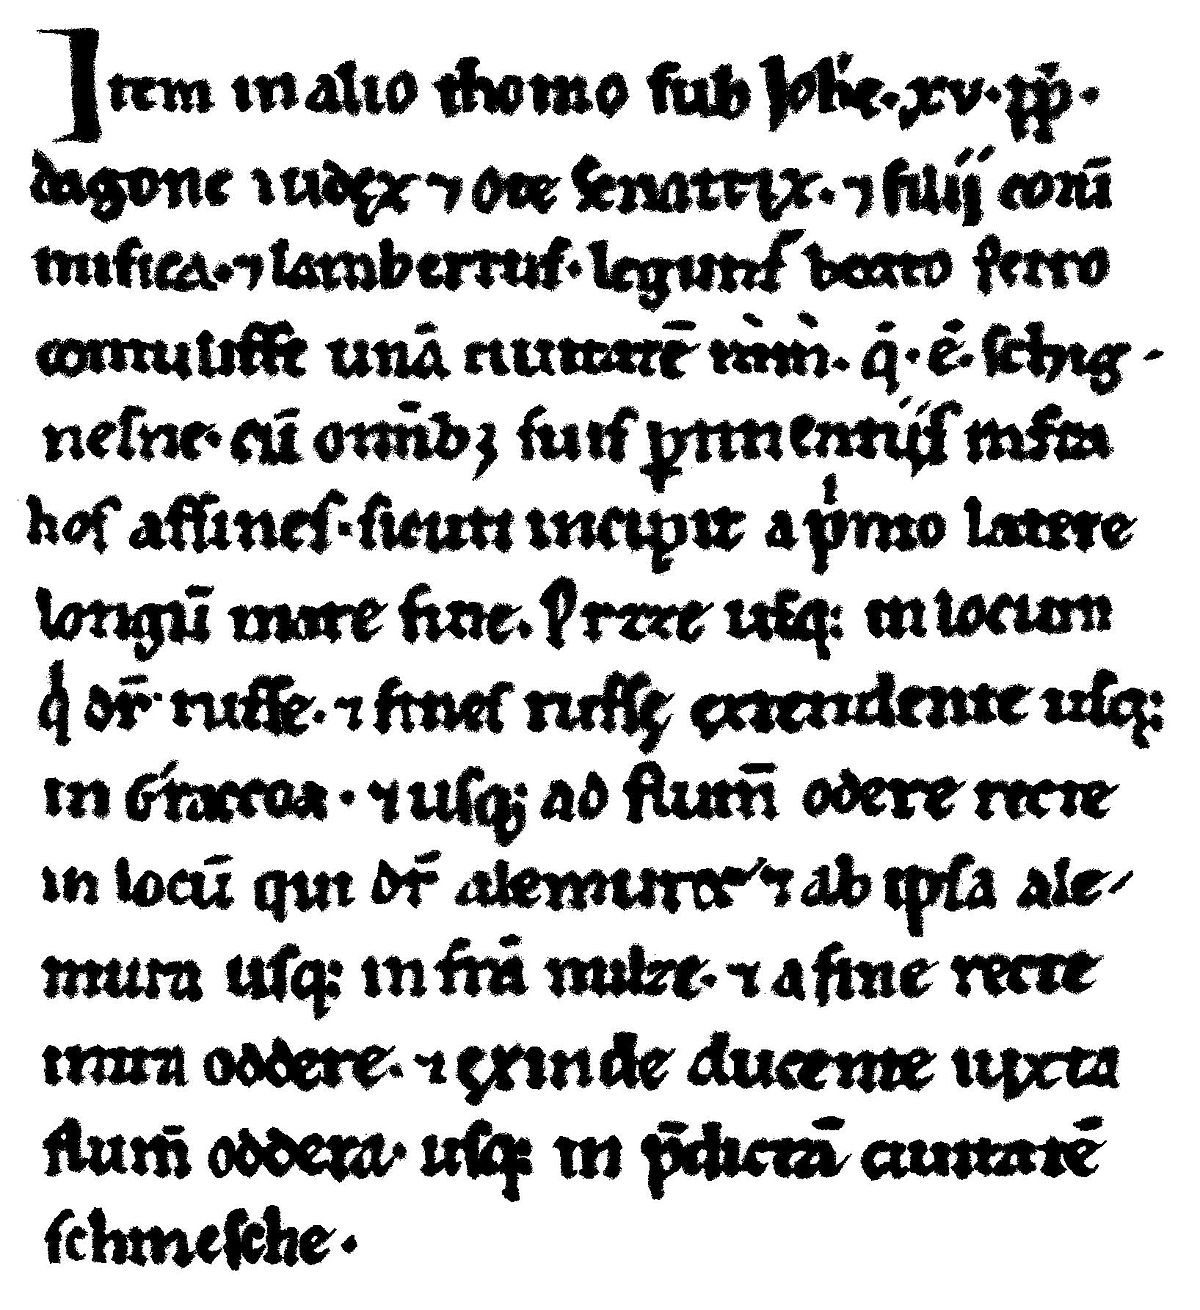 Item in alio thomo sub Joħe. xv. pp̄.
dagone iudęx ⁊ ote senatrix. ⁊ filij eorū
misica. ⁊ lambertus. legunt beato petro
contulisse unā ciuitatē inīn. q̄. ē. schig-
nesne. cū omīb; suis ꝑtinentijs infra
hos affines. sicuti incipit a pⁱmo latere
longū mare fine. Pruzze usq: in locum
qⁱ dr̄ russe. ⁊ fines russę extendente usq:
in Craccoa. ⁊ usq; ad flum̄ odere recte
in locū qui dr̄ alemure ⁊ ab ipsa ale-
mura usq: in trā milze. ⁊ a fine recte
intra oddere. ⁊ exinde ducente iuxta
flum̄ oddera. usq: in p̄dictā ciuitatē
schinesche.